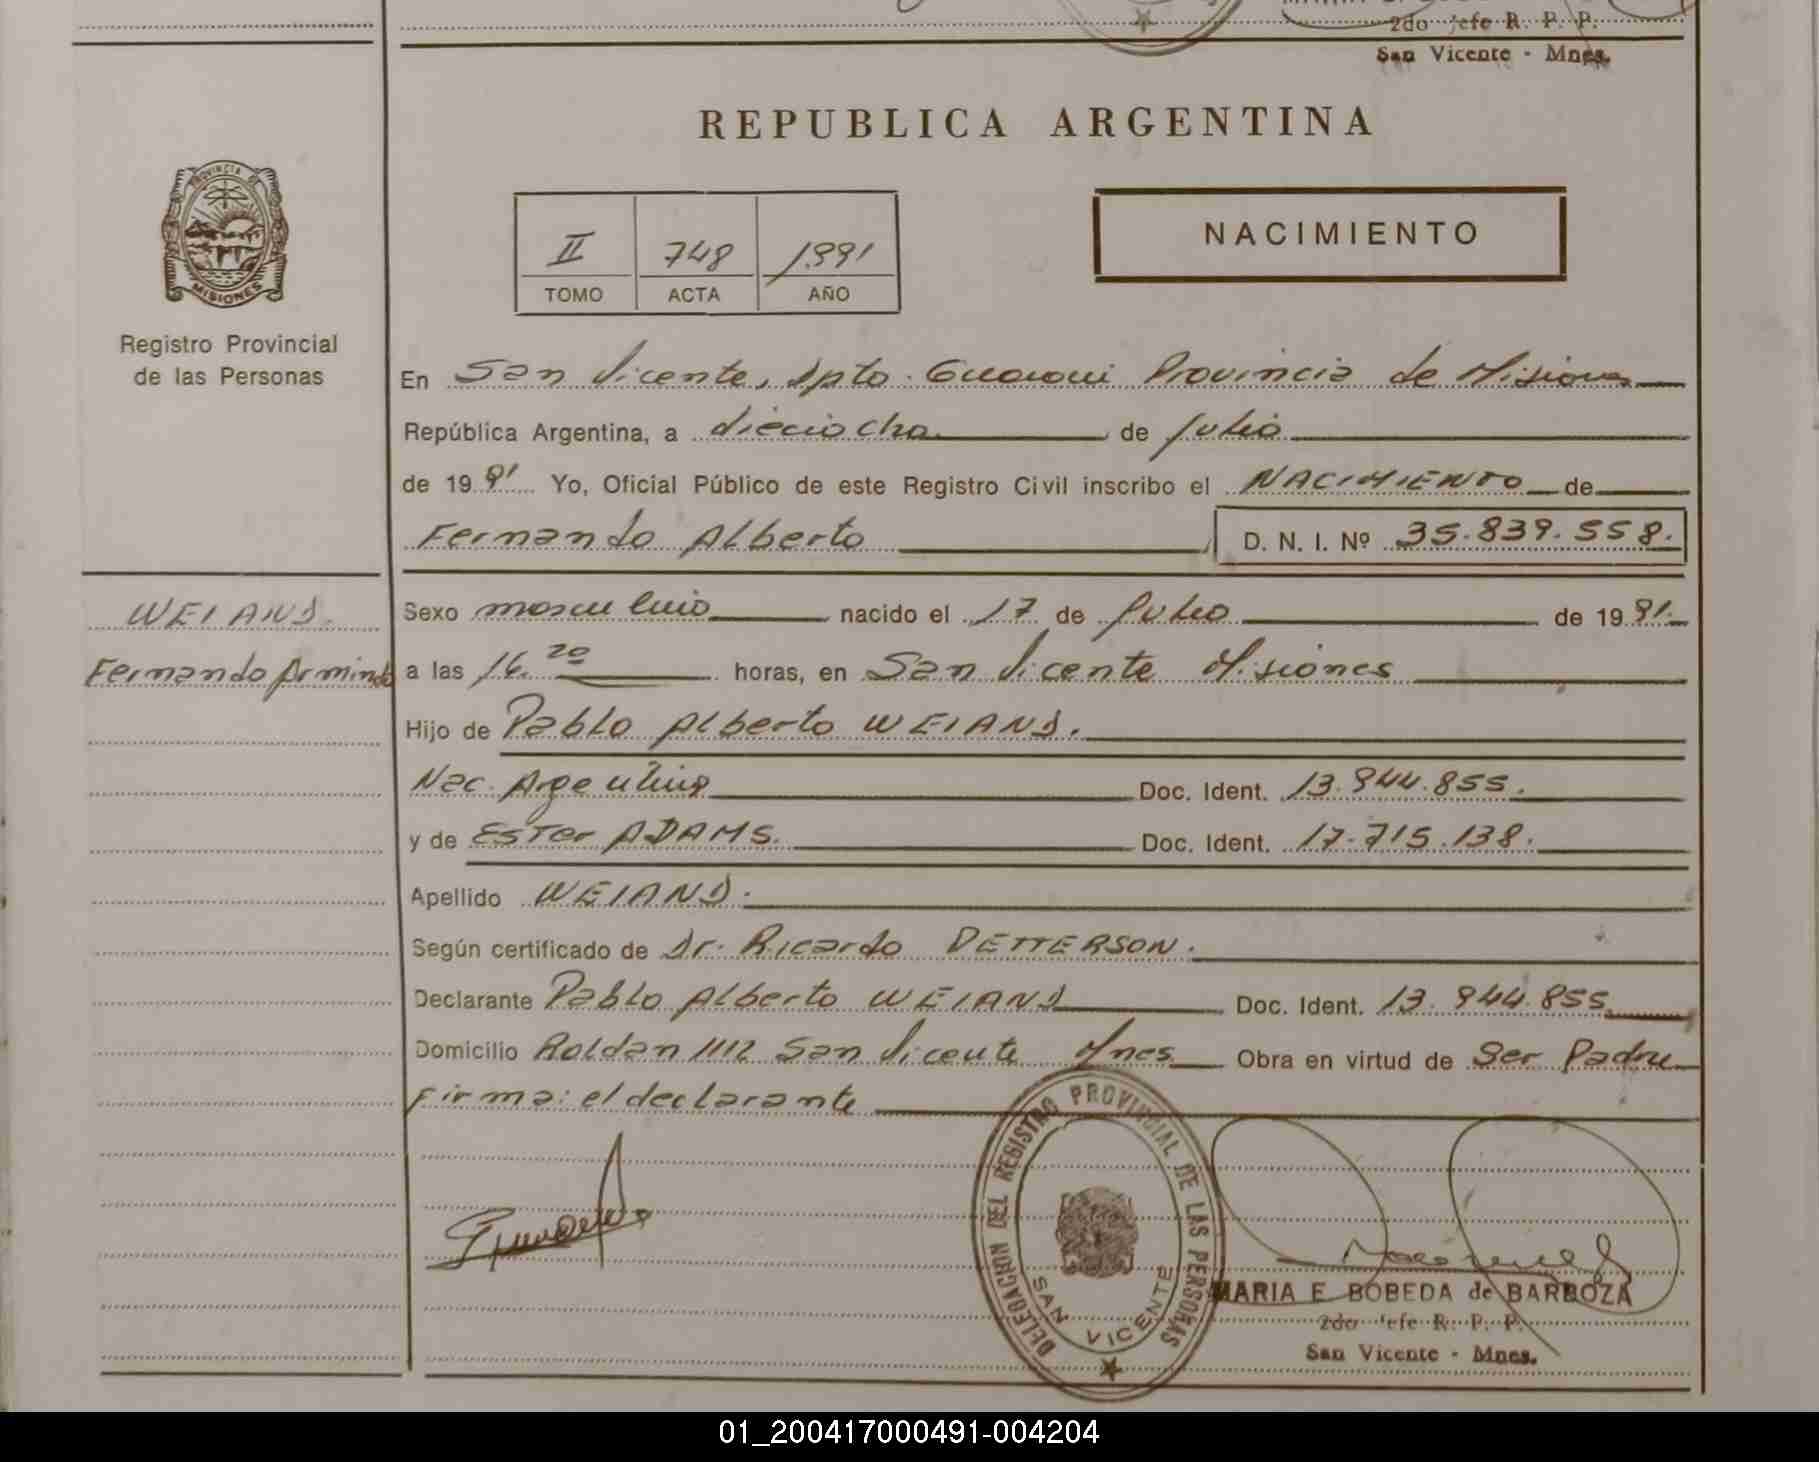 2do Jefe R. P. P.
San Vicente - Mnes.
REPUBLICA ARGENTINA
PROVINCIA DE
MISIONES
Registro Provincial
de las Personas
II 748 1991
TOMO ACTA AÑO
NACIMIENTO
En San Vicente, Dpto. Guarani Provincia de Misiones
República Argentina, a dieciocho de Julio
de 1991 Yo, Oficial Público de este Registro Civil inscribo el NACIMIENTO de
Fernando Alberto D. N. I. Nº 35.839.558.
WEIAND.
Fernando Armindo
Sexo masculino nacido el 17 de Julio de 1991.
a las 16.20 horas, en San Vicente Misiones
Hijo de Pablo Alberto WEIAND.
Nac. Argentina Doc. Ident. 13.944.855.
y de Ester ADAMS. Doc. Ident. 17.715.138.
Apellido WEIAND.
Según certificado de Dr. Ricardo DETTERSON.
Declarante Pablo Alberto WEIAND Doc. Ident. 13.944.855
Domicilio Roldan 1112 San Vicente Mnes Obra en virtud de Ser Padre
Firma: el declarante
DELEGACION DEL REGISTRO PROVINCIAL DE LAS PERSONAS
SAN VICENTE
MARIA E. BOBEDA de BARBOZA
2do Jefe R. P. P.
San Vicente - Mnes.
01_200417000491-004204